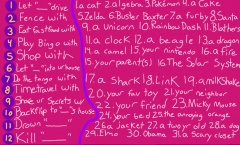 1 Let "___" drive
2 Fence with
3 Eat fastfood with
4 Play Bingo with
5 Shop with
6 Let "___" into ur house
7 Do the tango with
8 Timetravel with
9 Share ur secrets w/
10 Backflip to "___"'s house
11 Drown "___"
12 Kill "___"
1.a cat 2.algebra 3.Pokémon 4.a Cake
5.Zelda 6.Buster Baxter 7.a furby 8.Santa
9.a Unicorn 10.Rainbow Dash 11.Blothers
11.a clock 12.a beagle 13.a dragon
14.a camel 15.your nintendo 16.a fire
15.your parent(s) 16.The Solar System
17.a Shark 18.Link 19.a milkshake
20.your fav toy 21.your neighbor
22.your friend 23.Micky Mouse
24.your bed 25.the annoying orange
26.a Jacket 27.a two yr old 28.a dog
29.Elmo 30.Obama 31.a scary closet